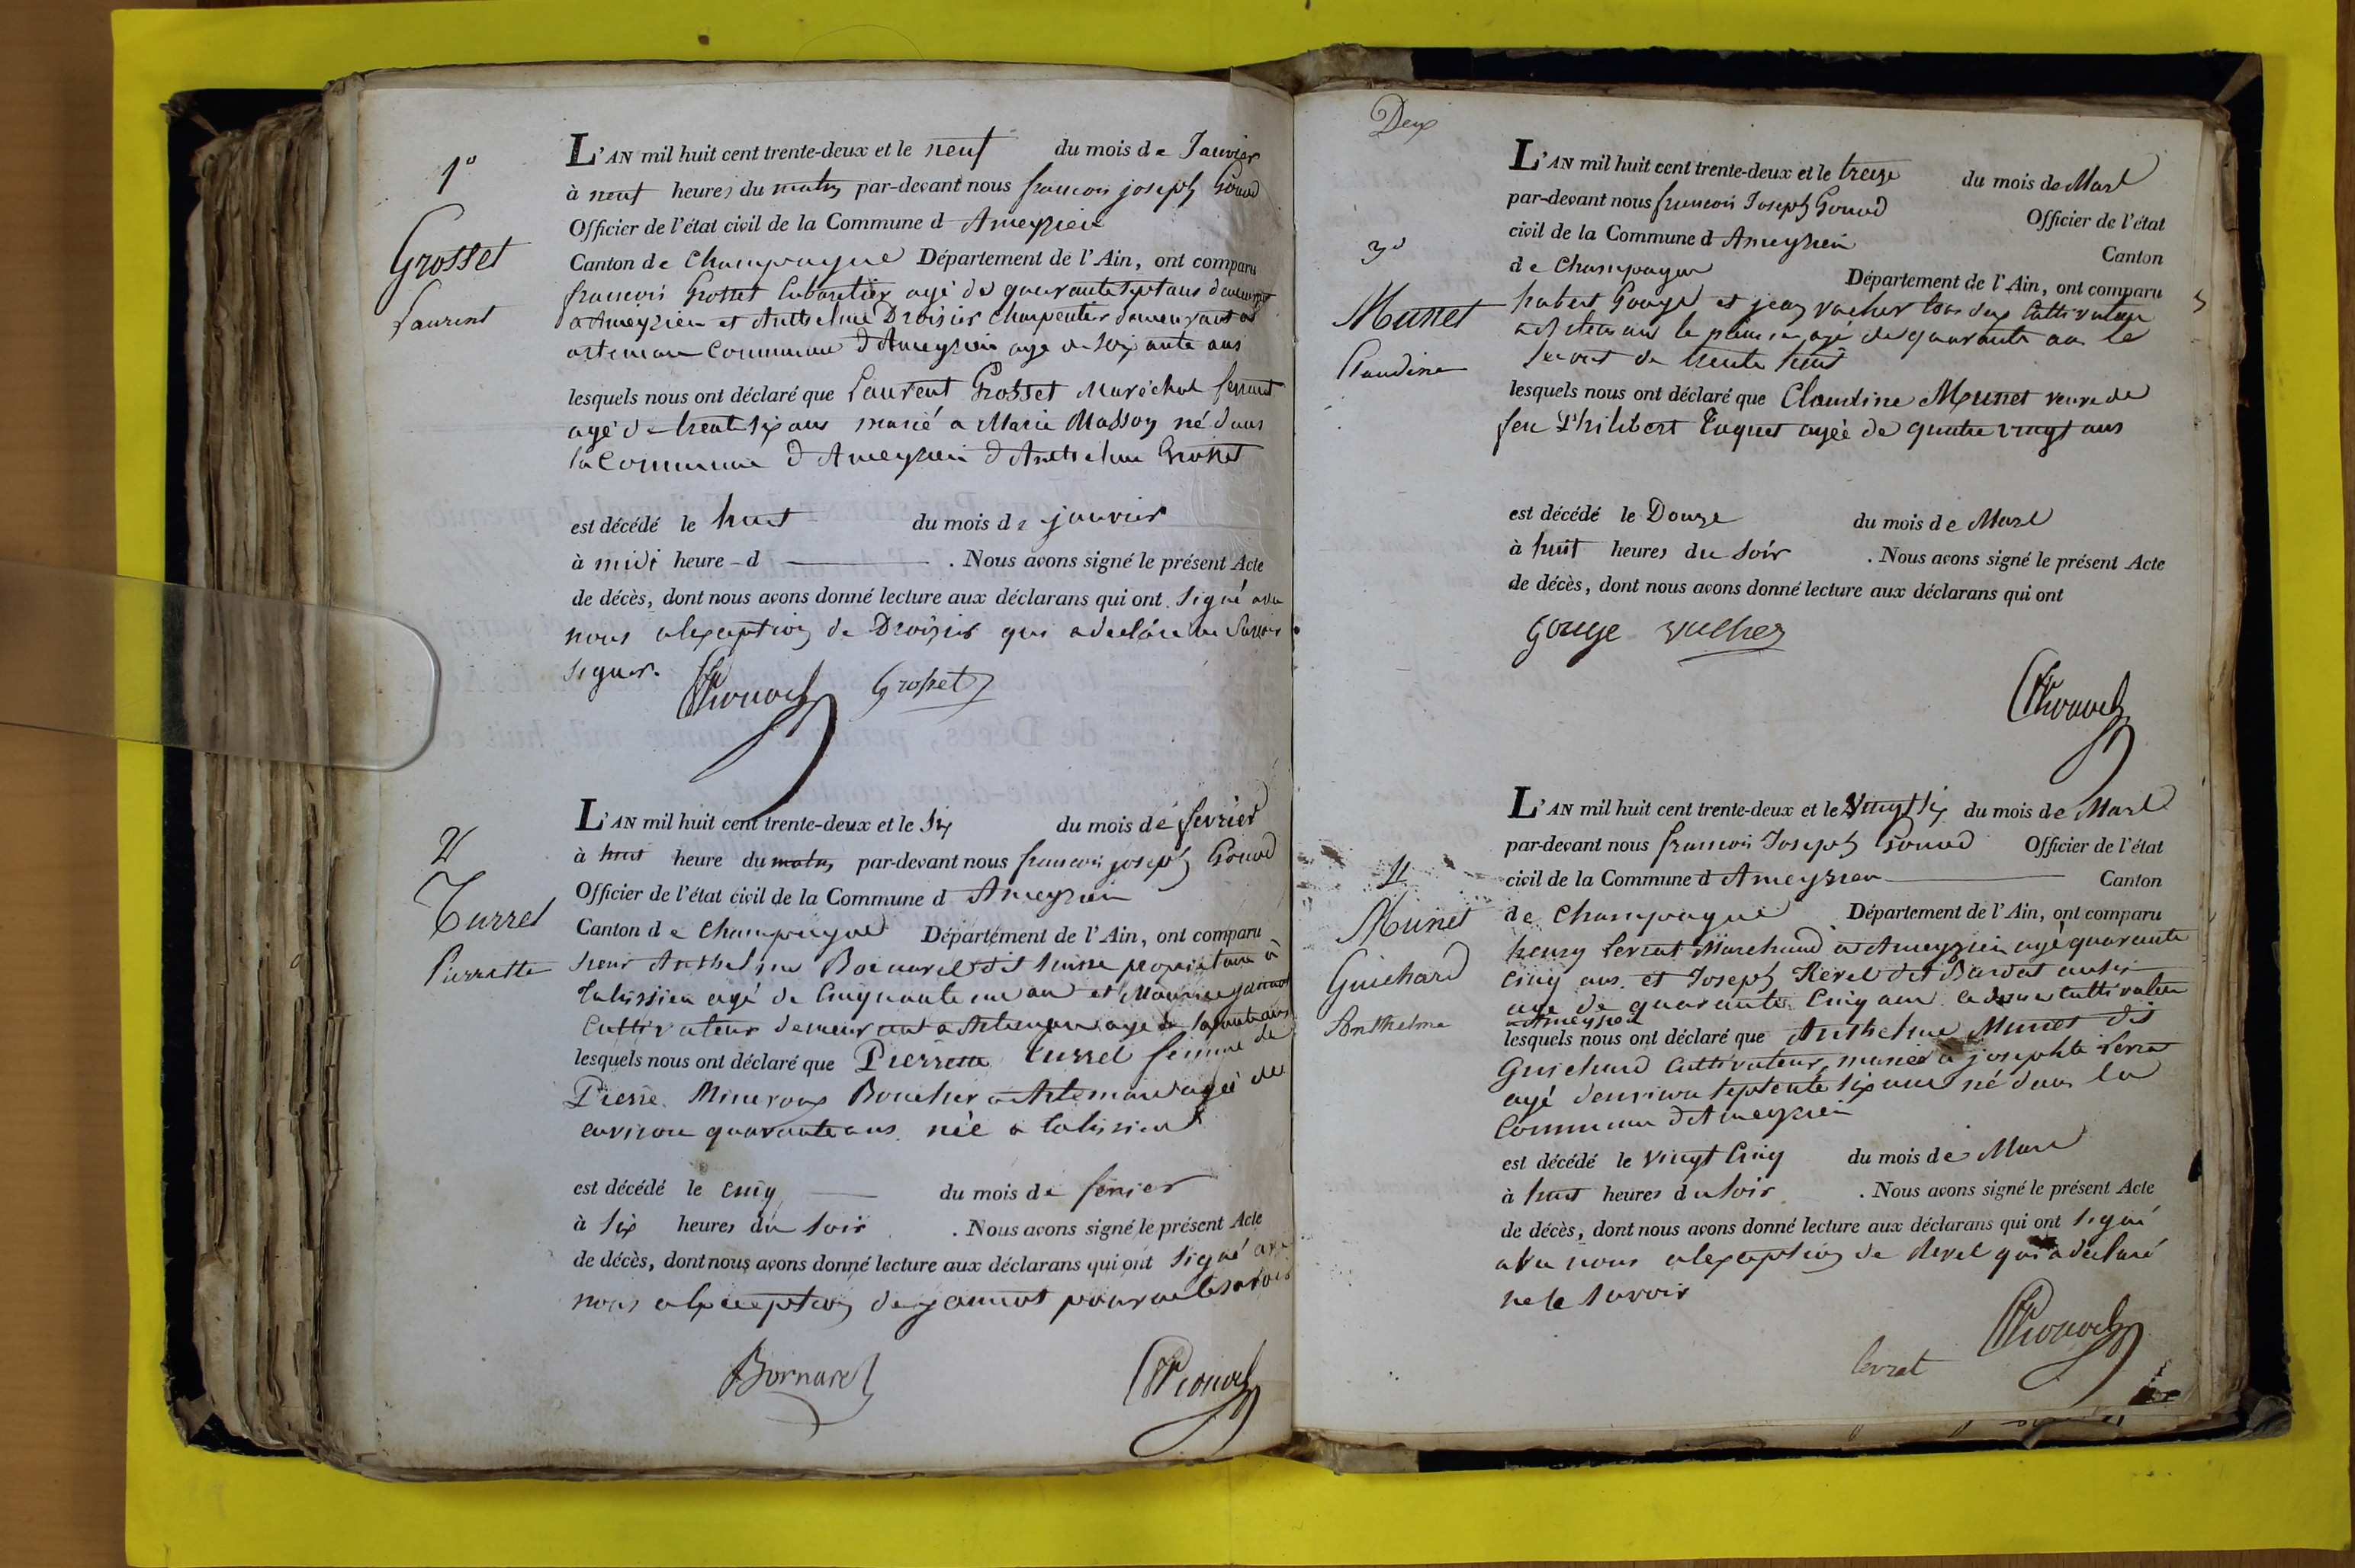 1º
Grosset
Laurent
L'AN mil huit cent trente-deux et le neuf du mois de Janvier
à neuf heures du matin par-devant nous francois joseph Gonod
Officier de l'état civil de la Commune d Ameyzieu
Canton de Champagne Département de l'Ain, ont comparu
francois Grosset Cabaretier agé de quarante sept ans demeurant
a Ameyzieu et Anthelme Droisier charpentier demeurant a
artemare Commune d'Ameyzieu age de soixante ans
lesquels nous ont déclaré que Laurent Grosset Maréchal ferrant
agé de trente six ans marié a Marie Masson né dans
la Commune d'Ameyzieu d'Anthelme Grosset
est décédé le huit du mois de janvier
à midi heure - d . Nous avons signé le présent Acte
de décès, dont nous avons donné lecture aux déclarans qui ont signé avec
nous a lexception de Droisier qui a declaré ne savoir
signer.
Gonod Grosset
2
Turrel
Pierrette
L'AN mil huit cent trente-deux et le six du mois de fevrier
à huit heure du matin par-devant nous francois joseph Gonod
Officier de l'état civil de la Commune d Ameyzieu
Canton de Champagne Département de l'Ain, ont comparu
sieur Anthelme Bornarel dit suisse propriétaire à
talissieu agé de Cinquante un an et Maurice janinot
Cultivateur demeurant a Artemare age de soixante ans
lesquels nous ont déclaré que Pierrette Turrel femme de
Pierre Mineroux Boucher a Artemare agée de
environ quarante ans née a talissieu
est décédé le cinq du mois de fevrier
à six heures du soir . Nous avons signé le présent Acte
de décès, dont nous avons donné lecture aux déclarans qui ont signé avec
nous a lexception de janinot pour ne le savoir
Bornarel Gonod
Deux
3º
Munet
Claudine
L'AN mil huit cent trente-deux et le treize du mois de Mars
par-devant nous francois Joseph Gonod Officier de l'état
civil de la Commune d Ameyzieu Canton
de Champagne Département de l'Ain, ont comparu
hubert Gouge et jean vacher tous deux Cultivateurs
le premier agé de quarante ans le
second de trente huit
lesquels nous ont déclaré que Claudine Munet veuve de
feu Philibert Tuquet agée de quatre vingt ans
est décédé le Douze du mois de Mars
à huit heures du soir . Nous avons signé le présent Acte
de décès, dont nous avons donné lecture aux déclarans qui ont
Gouge vacher
Gonod
4
Munet
Guichard
Anthelme
L'AN mil huit cent trente-deux et le Vingt six du mois de Mars
par-devant nous francois Joseph Gonod Officier de l'état
civil de la Commune d Ameyzieu Canton
de Champagne Département de l'Ain, ont comparu
henry Levrat Marchand a Ameyzieu agé quarante
cinq ans et Joseph Revel dit Bardot aussi
age de quarante Cinq ans Cultivateur
a Ameyzieu
lesquels nous ont déclaré que Anthelme Munet dit
Guichard Cultivateur, marié a josephte Levrat
agé denviron septente six ans né dans la
Commune d'Ameyzieu
est décédé le vingt Cinq du mois de Mars
à huit heures du soir . Nous avons signé le présent Acte
de décès, dont nous avons donné lecture aux déclarans qui ont signé
avec nous a lexception de Revel qui a declaré
ne le savoir
Gonod
levrat